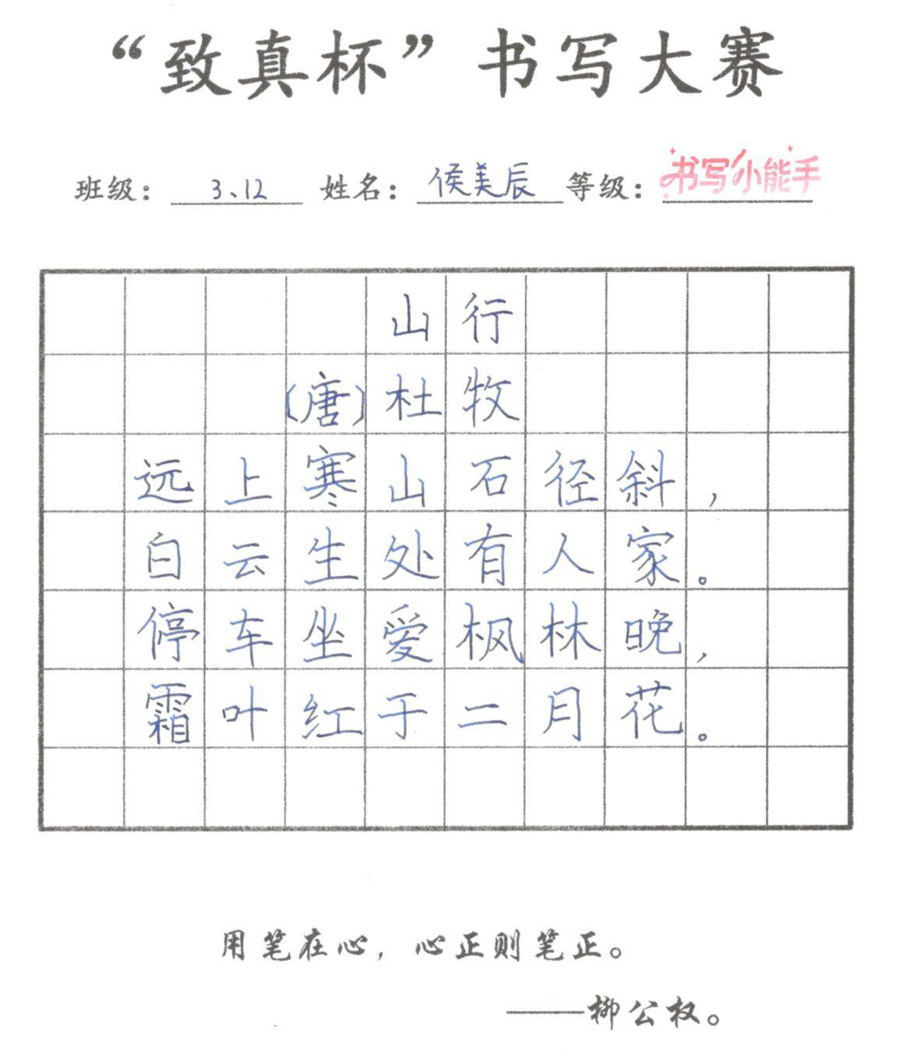 “致真杯”书写大赛
班级：3、12 姓名：侯美辰 等级：书写小能手
山行
（唐）杜牧
远上寒山石径斜，
白云生处有人家。
停车坐爱枫林晚，
霜叶红于二月花。
用笔在心，心正则笔正。
——柳公权。